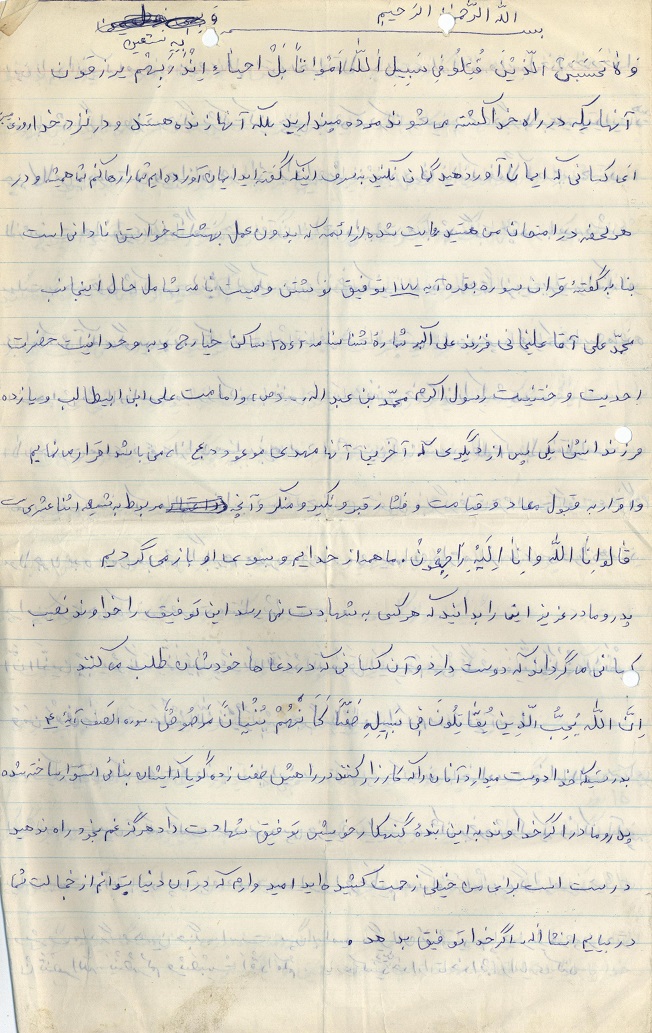 بسم الله الرّحمن الرّحیم و به نستعین
ولا تحسبن الّذین قُتِلُو فی سبیل اللّه اَمواتاً بَلْ احیاءِ عِنْدَ رَبِهِّمْ یرزقون
آنهایکه در راه خدا کشته می شوند مرده مپندارید بلکه آنها زنده هستند و در نزد خدا روزی
ای کسانی که ایمان آورده‌اید گمان نکنید به صرف اینکه گفته اید ایمان آورده ایم شما را رها کنم شما همیشه و در
هر لحظه در امتحان من هستید روایت شده از ائمه که بدون عمل بهشت خواستن نادانی است
بنا به گفتهٔ قرآن سوره بقره آیه ۱۷۷ توفیق نوشتن وصیت نامه شامل حال اینجانب
محمّد علی آقا علیخانی فرزند علی اکبر شمارهٔ شناسنامه ۲۵۶۲ ساکن خیارج و به وحدانیت حضرت
احدیت و ختمیت رسول اکرم محمّد بن عبدالله (ص) و امامت علی ابن ابیطالب و یازده
فرزندانش یکی پس از دیگری که آخرین آنها مهدی موعود (عج) می باشد اقرار می نمایم
و اقرار به قبول معاد و قیامت و فشار قبر و نکیر و منکر و آنچه مربوط به شیعه اثنا عشری
قالو اِنا اللّه و اِنا اِلَیْهِ رٰاجِعُونْ. ما همه از خدایم و بسوی او باز می گردیم
پدر و مادر عزیز این را بدانید که هرکس به شهادت نمی رسد این توفیق را خداوند نصیب
کسانی می گرداند که دوست دارد و آن کسانی که در دعاها خودشان طلب می کنند
اِنَّ اللّه یُحِبُّ الّذینَ یُقٰاتِلُونَ فی سَبیلِهِ صَفّاً کَاَنَّهُمْ بُنْیٰانٌ مَرْصُوصٌ. سوره الصف آیه ۴
بدرستیکه خدا دوست میدارد آنان را که کارزار کنند در راهش صف زده گویا که ایشان بنائی استوار ساخته شده
پدر و مادر اگر خداوند به این بندهٔ گنهکار خویش توفیق شهادت داد هرگز غم بخود راه ندهید
درست است برای من خیلی زحمت کشیده اید امیدوارم که در آن دنیا بتوانم از خجالت شما
در بیایم انشاالله اگر خدا توفیق بدهد .